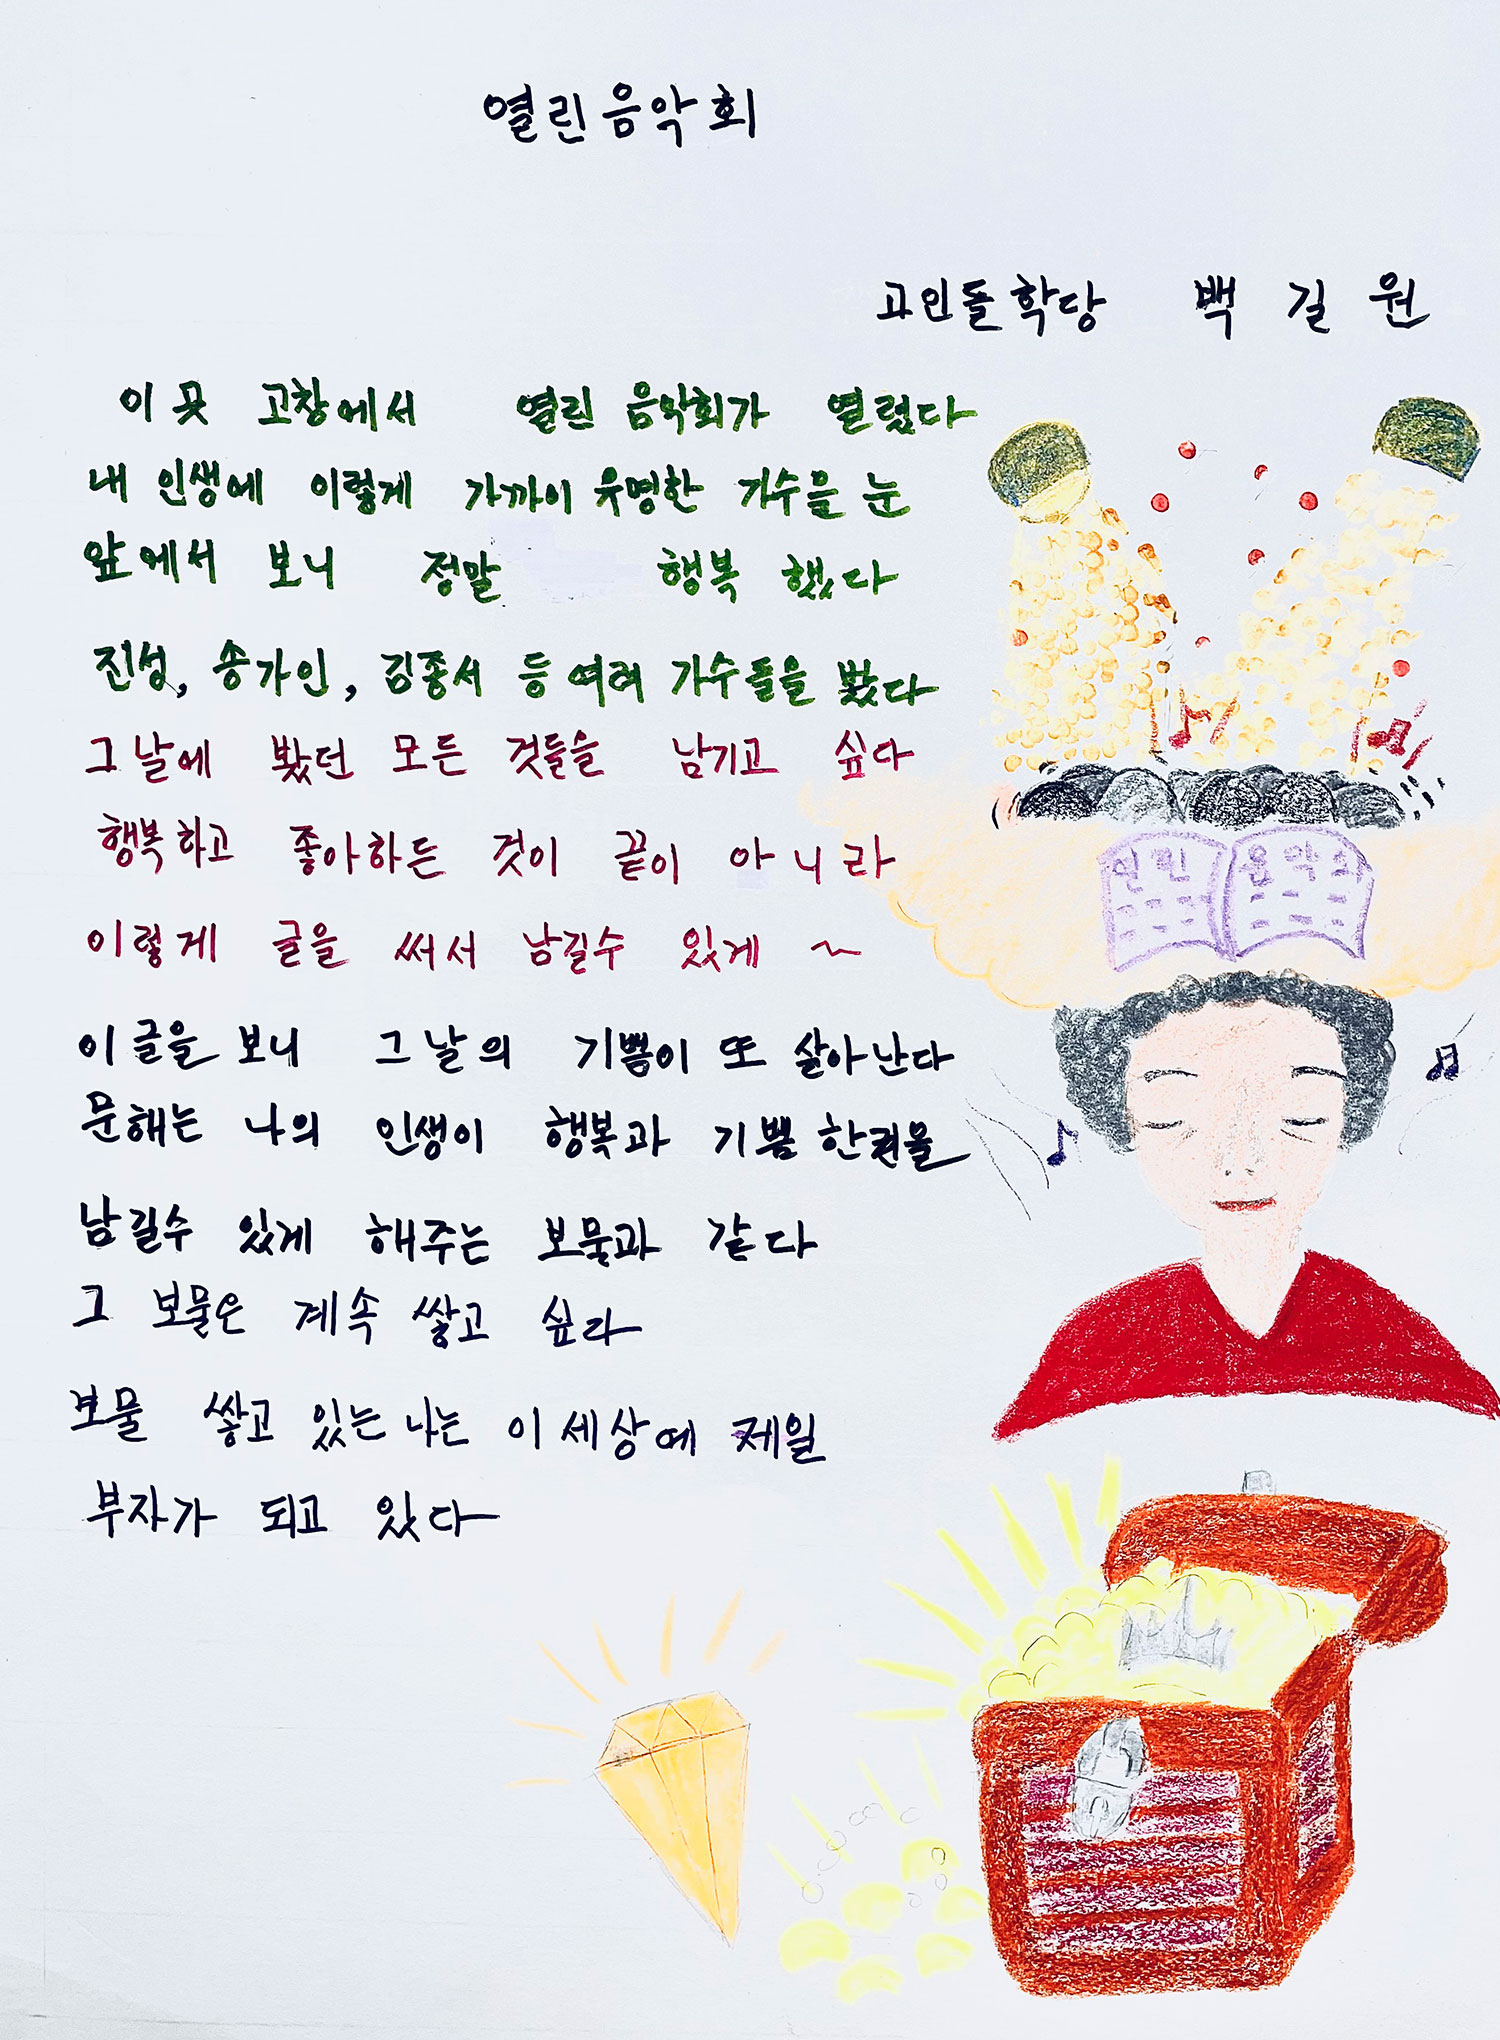 열린음악회
고인돌학당 백길원
이곳 고창에서 열린 음악회가 열렸다
내 인생에 이렇게 가까이 유명한 가수을 눈
앞에서 보니 정말 행복 했다
진성, 송가인, 김종서 등 여러 가수들을 봤다
그날에 봤던 모든 것들을 남기고 싶다
행복하고 좋아하는 것이 끝이 아니라
이렇게 글을 써서 남길수 있게 ~
이글을 보니 그날의 기쁨이 또 살아난다
문해는 나의 인생이 행복과 기쁨 한권을
남길수 있게 해주는 보물과 같다
그 보물은 계속 쌓고 싶다
보물 쌓고 있는 나는 이 세상에 제일
부자가 되고 있다
열린 음악회